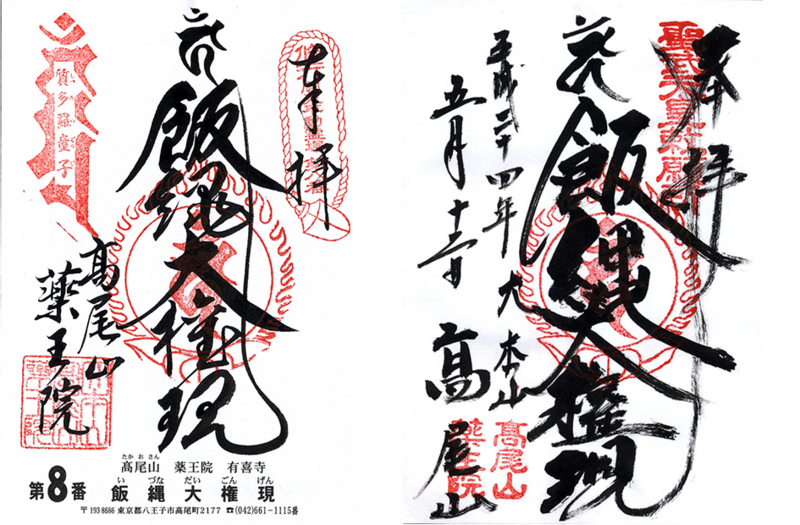 奉拝
飯縄大権現
髙尾山
薬王院
質多羅童子
たかおさん
髙尾山 薬王院 有喜寺
いづなだいごんげん
第8番 飯縄大権現
〒193-8686 東京都八王子市高尾町2177 ☎(042)661-1115番
奉拝
聖武天皇勅願所
飯縄大権現
平成二十四年
五月
大本山
髙尾山
髙尾山
薬王院